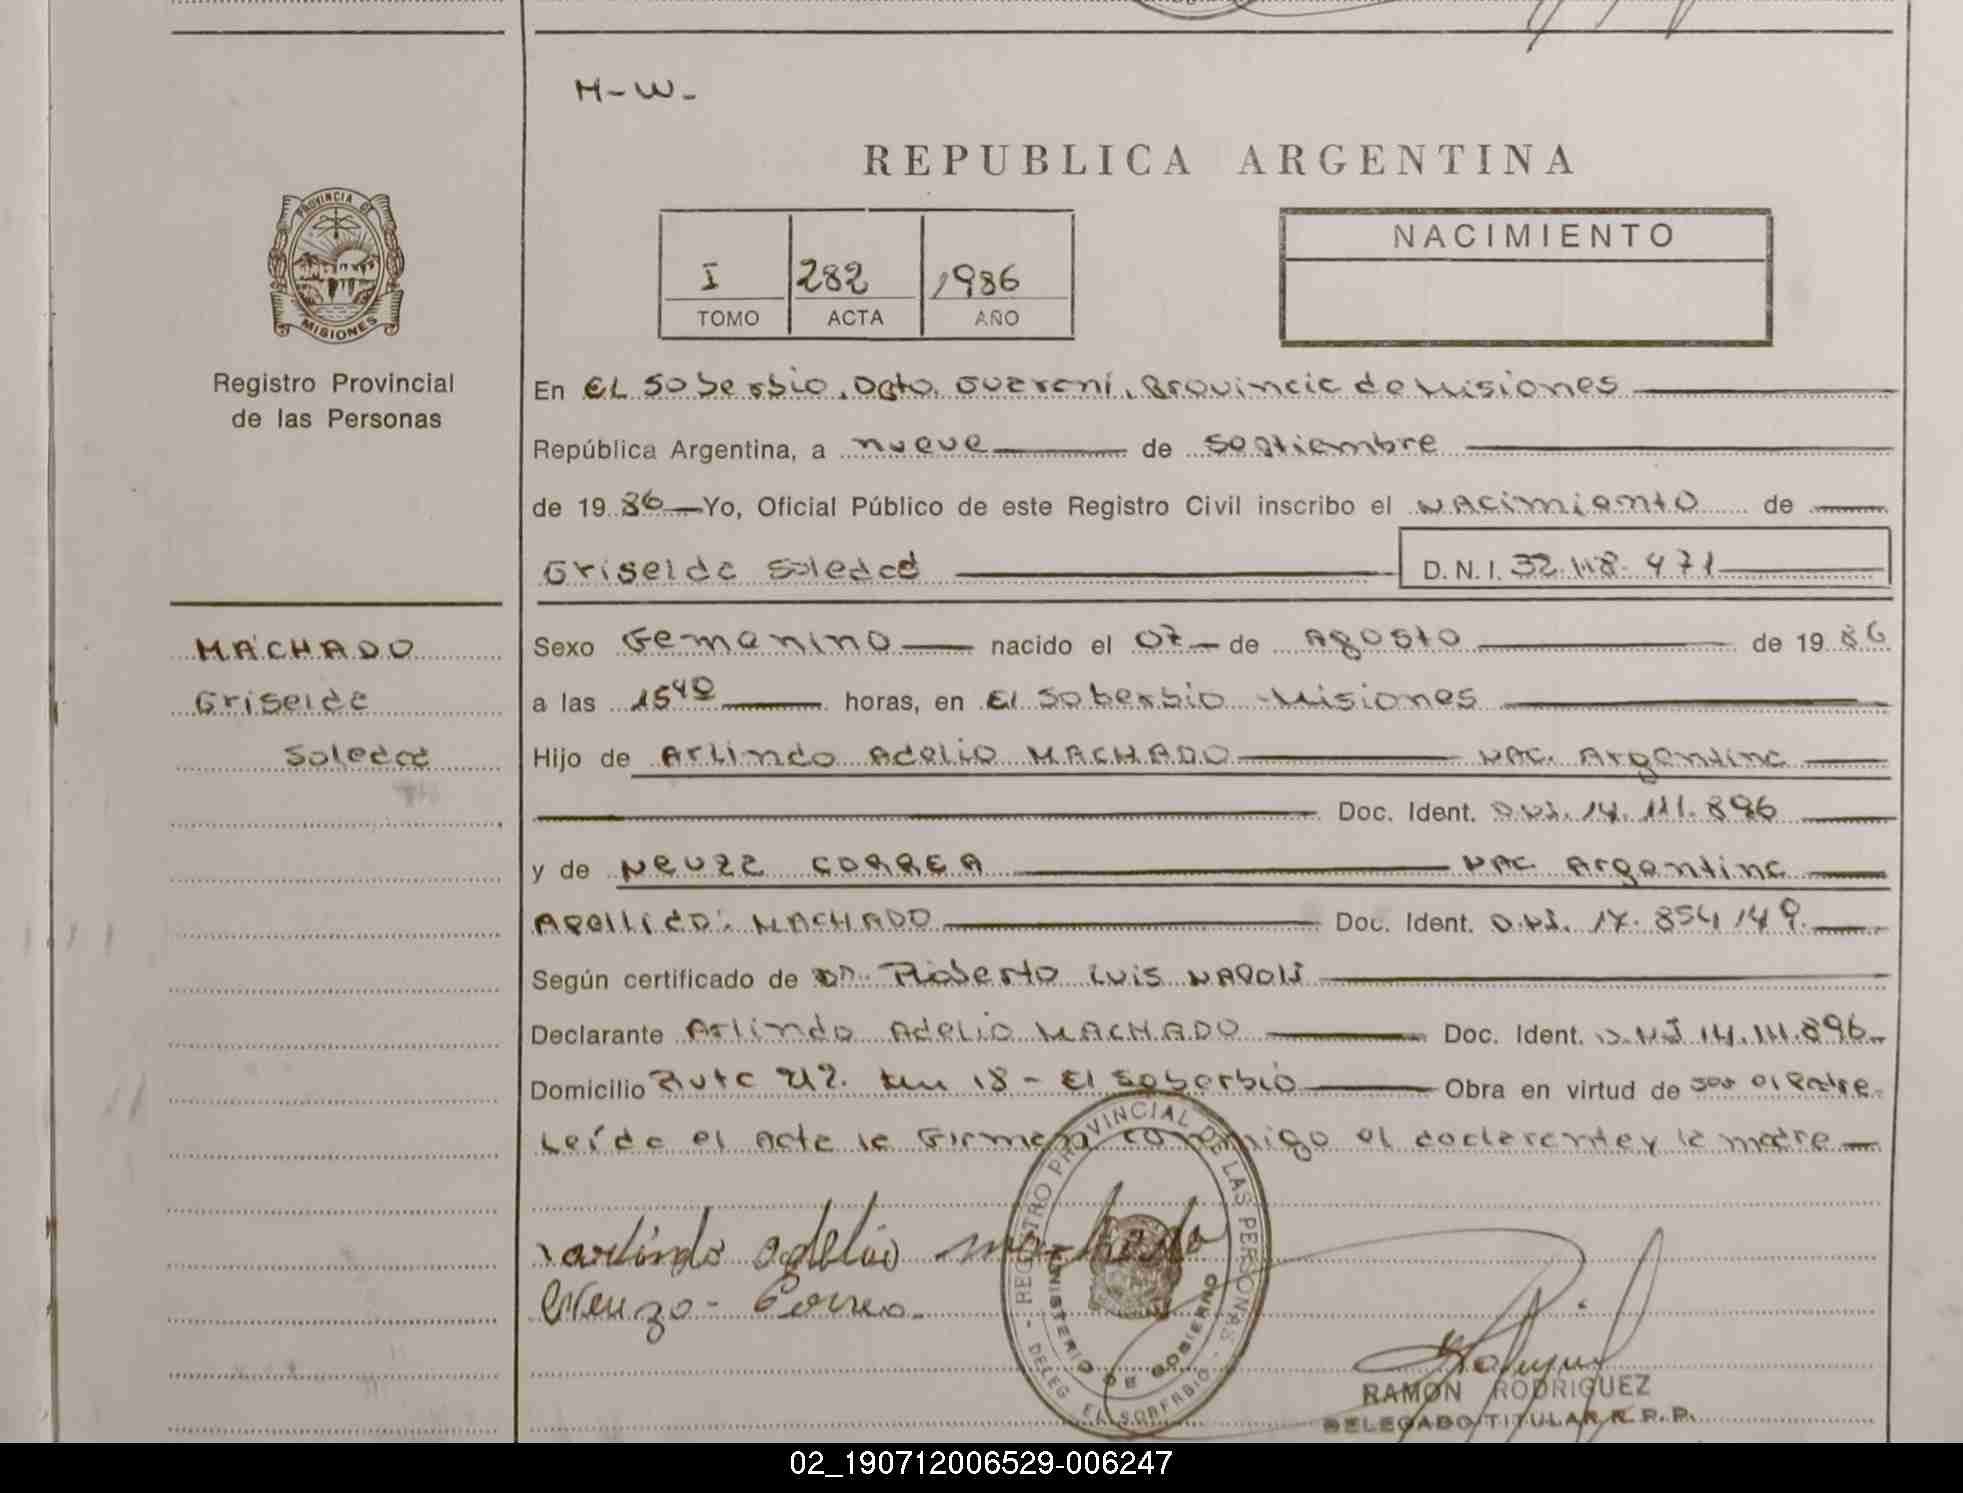 H-W-
REPUBLICA ARGENTINA
PROVINCIA DE MISIONES
Registro Provincial
de las Personas
I 282 1986
TOMO ACTA AÑO
NACIMIENTO
En EL Soberbio, Dpto. Guarani, Provincia de Misiones
República Argentina, a nueve de septiembre
de 19 86 Yo, Oficial Público de este Registro Civil inscribo el NACimiento de
Griselda Soledad D.N.I. 32.118.471
MACHADO
Griselda
Soledad
Sexo Femenino nacido el 07 de Agosto de 19 86
a las 15 40 horas, en El Soberbio - Misiones
Hijo de Arlindo Adelio MACHADO NAC. Argentina
Doc. Ident. D.N.I. 14.111.896
y de Neuza CORREA NAC. Argentina
Apellido: MACHADO Doc. Ident. D.N.I. 17.854.149.
Según certificado de Dr. Roberto Luis NAPOLI
Declarante Arlindo Adelio MACHADO Doc. Ident. D.N.I 14.111.896
Domicilio Ruta 212. Km 18 - El Soberbio Obra en virtud de ser el Padre.
Leída el Acta la Firman conmigo el declarante y la madre
arlindo adelio machado
Neuza - Correa.
REGISTRO PROVINCIAL DE LAS PERSONAS
MINISTERIO DE GOBIERNO
DELEG. EL SOBERBIO
RAMON RODRIGUEZ
DELEGADO TITULAR R.P.P.
02_190712006529-006247